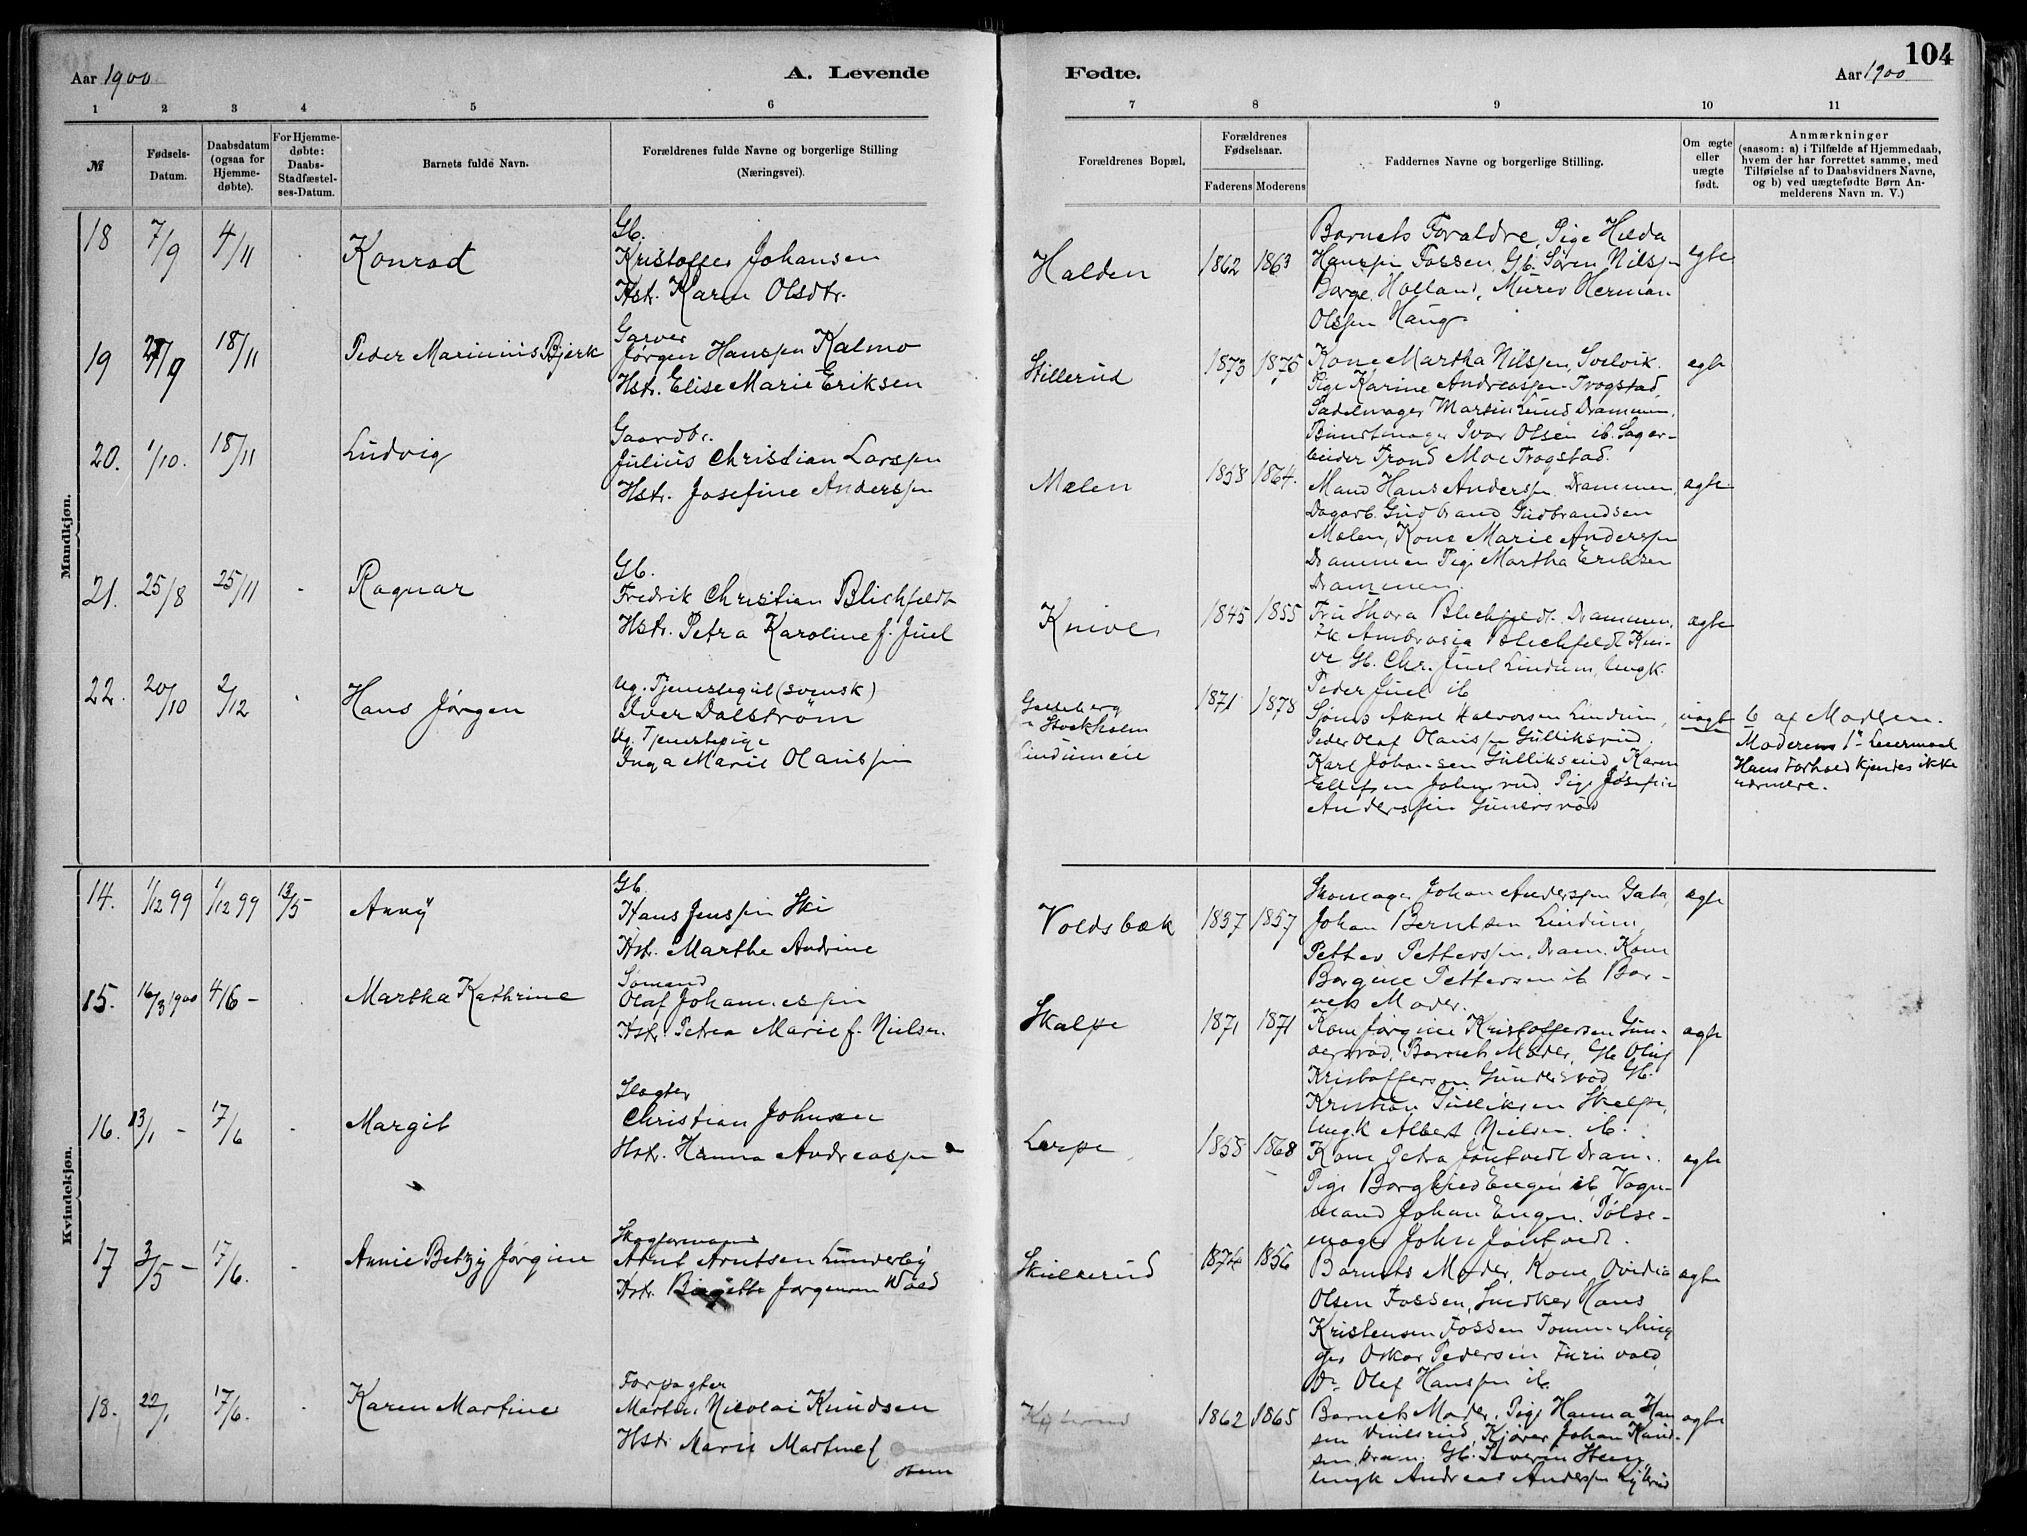 104
Aar 1900
A. Levende
Fødte.
Aar 1900
1 2 3 4 5 6 7 8 9 10 11
№
Fødsels-
Datum.
Daabsdatum
(ogsaa for
Hjemme-
døbte).
For Hjemme-
døbte:
Daabs-
Stadfæstel-
ses-Datum.
Barnets fulde Navn.
Forældrenes fulde Navne og borgerlige Stilling
(Næringsvei).
Forældrenes Bopæl.
Forældrenes
Fødselsaar.
Faderens Moderens
Faddernes Navne og borgerlige Stilling.
Om ægte
eller
uægte
født.
Anmærkninger
(saasom: a) i Tilfælde af Hjemmedaab,
hvem der har forrettet samme, med
Tilføielse af to Daabsvidners Navne,
og b) ved uægtefødte Børn An-
melderens Navn m. V.)
Mandkjøn.
18 7/9 4/11 Konrad
Gb.
Kristoffer Johansen
Hst. Karen Olsdtr.
Halden 1862 1863
Barnets Forældre, Pige Hilda
Hanssen Fossen, Gb. Søren Nilssen
Borge, Holland, Murer Herman
Olssen Haug
egte
19 27/9 18/11 Peder Marinius Bjerk
Garver
Jørgen Hanssen Kalmo
Hstr. Elise Marie Eriksen
Stillerud 1873 1875
Kone Martha Nilssen, Svelvik.
Pige Karine Andreassen Trogstad,
Sadelmager Martin Lund Drammen,
Buntmager Ivar Olsen ib. Sagar-
beider Trond Moe Trogstad.
egte
20. 1/10. 18/11 Ludvig
Gaardbr.
Julius Christian Larssen
Hstr. Josefine Anderssen
Mælen 1858 1864.
Mand Hans Anderssen Drammen,
Dagarb. Gudbrand Gudbrandsen
Mælen, Kone Marie Anderssen
Drammen Pige Martha Eriksen
Drammen.
ægte
21. 25/8 25/11 Ragnar
Gb.
Fredrik Christian Blichfeldt
Hstr. Petra Karoline f. Juel
Knive 1845 1855
Fru Thora Blichfeldt Drammen,
Frk Ambrosia Blichfeldt Kni-
ve Gb. Chr. Juel Lindum, Ungk.
Peder Juel ib
ægte
22. 20/10 2/12 Hans Jørgen
Ug. Tjenestegut (svensk)
Iver Dalstrøm
Ug. Tjenestepige
Inga Marie Olaussen
Galleberg
fr Stockholm
Lindumeie
1871 1878
Halvorsen Lindum,
Peder Olaf Olaussen Gulliksrud.
Karl Johansen Gulliksrud Karen
Ellefsen Johnsrud Pige Josefine
Anderssen Gunersrød
uægt
b af Modren.
Moderens 1ste Leiermaal
Hans Forhold kjendes ikke
nærmere.
Kvindekjøn.
14. 1/12 99 1/12 99 13/5 Anny
Gb.
Hans Jenssen Ski
Hst. Marthe Andrine
Voldsbæk 1837 1857
Skomager Johan Anderssen Gata,
Johan Berntsen Lindum,
Petter Petterssen, Dram. Kone
Borgine Pettersen ib Bar-
nets Moder.
ægte
15. 16/3 1900 4/6 - Martha Kathrine
Sømand
Olaf Johannessen
Hst. Petra Marie f. Nielsen.
Skalpe 1871 1871
Kone Jørgine Kristoffersen Gun-
dersrød, Barnets Moder, Gb Oluf
Kristoffersen Gundersrød Gb.
Kristian Gulliksen Skalpe,
Ungk Albert Nielsen ib.
ægte
16. 13/1 - 17/6 Margit
Slagter
Christian Johnsen
Hstr. Hanna Andreassen
Lerpe 1858 1868
Kone Petra Jøntvedt Dram.
Pige Borghild Engen ib Vogn-
mand Johan Engen. Pølse-
mager John Jøntvedt.
egte
17 3/5 - 17/6. Annie Betzy Jørgine
Arnt Arntsen Lunderby
Hst. Birgitte Jørgensen Wold
1874 1856
Barnets Moder, Kone Ovidia
Olsen Fossen, Snedker Hans
Kristensen Fossen Tommerhug
ger Oskar Pedersen Furuvald
Do Olaf Hanssen ib.
ægte
18. 22/1 17/6. Karen Martine
Forpagter
Martin Nicolai Knudsen
Hstr Marie Martine f
Steen
1862 1865
Barnets Moder, Pige Hanna Han
sen Kjører Johan Knud-
sen, Dram. Gb. Severin Steen,
Ungk Andreas Anderssen
ægte